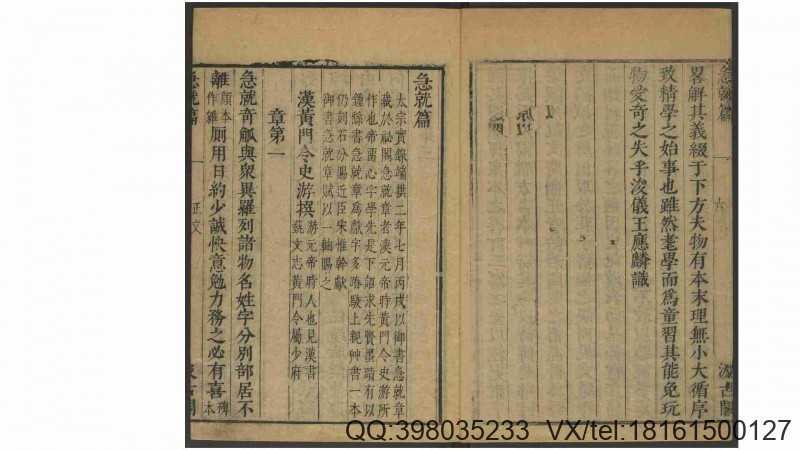 畧解其義綴于下方夫物有本末理無小大循序
致精學之始事也雖然耄學而爲童習其能免玩
物愛奇之失乎浚儀王應麟識
急就篇
太宗實錄端拱二年七月丙戌以御書急就章
藏於祕閣急就章者漢元帝時黃門令史游所
作也帝留心字學先是下詔求先賢墨蹟有以
鍾繇書急就章爲獻字多踳駮上親艸書一本
仍刻石分賜近臣宋惟幹獻
御書急就章賦以一軸賜之
漢黃門令史游撰
游元帝時人也見漢書
蓺文志黃門令屬少府
章第一
急就奇觚與衆異羅列諸物名姓字分別部居不
離
顏本
作雜
厠用日約少誠快意勉力務之必有喜
碑
本
急就篇
一
正文
急就篇
六
汲古閣
QQ:398035233 VX/tel:18161500127